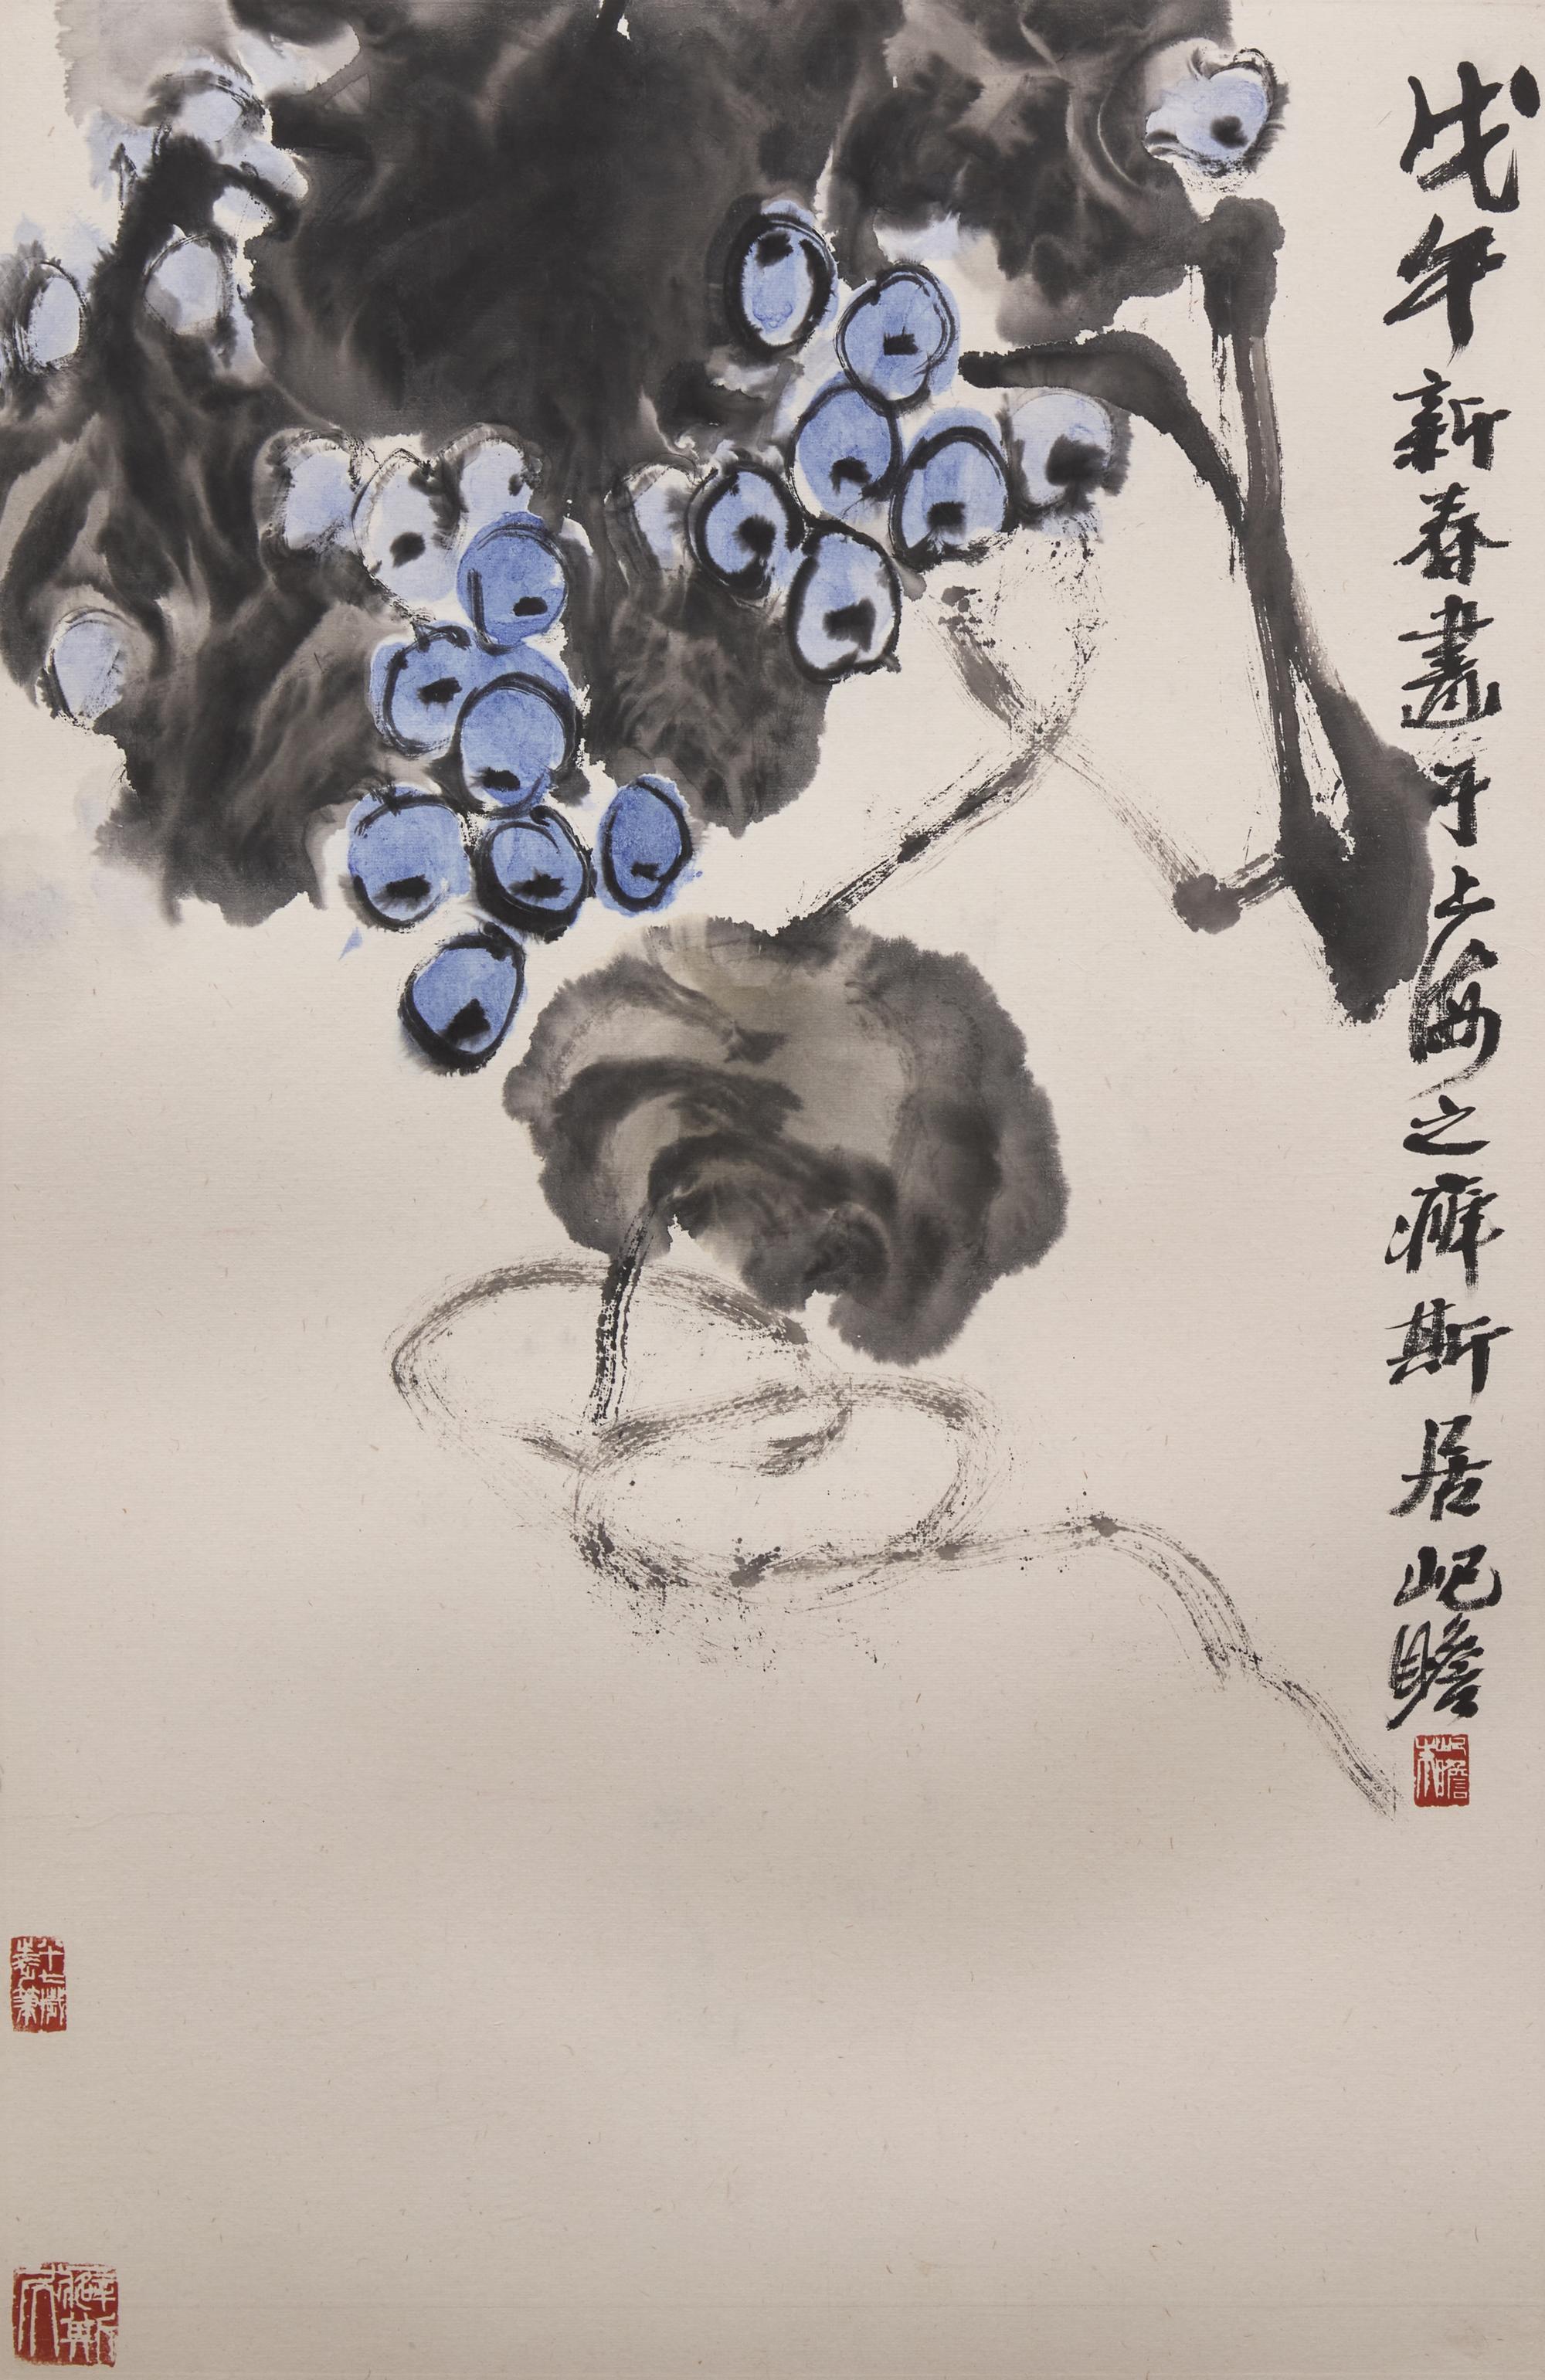 戊午新春畫于上海之癖斯居屺瞻